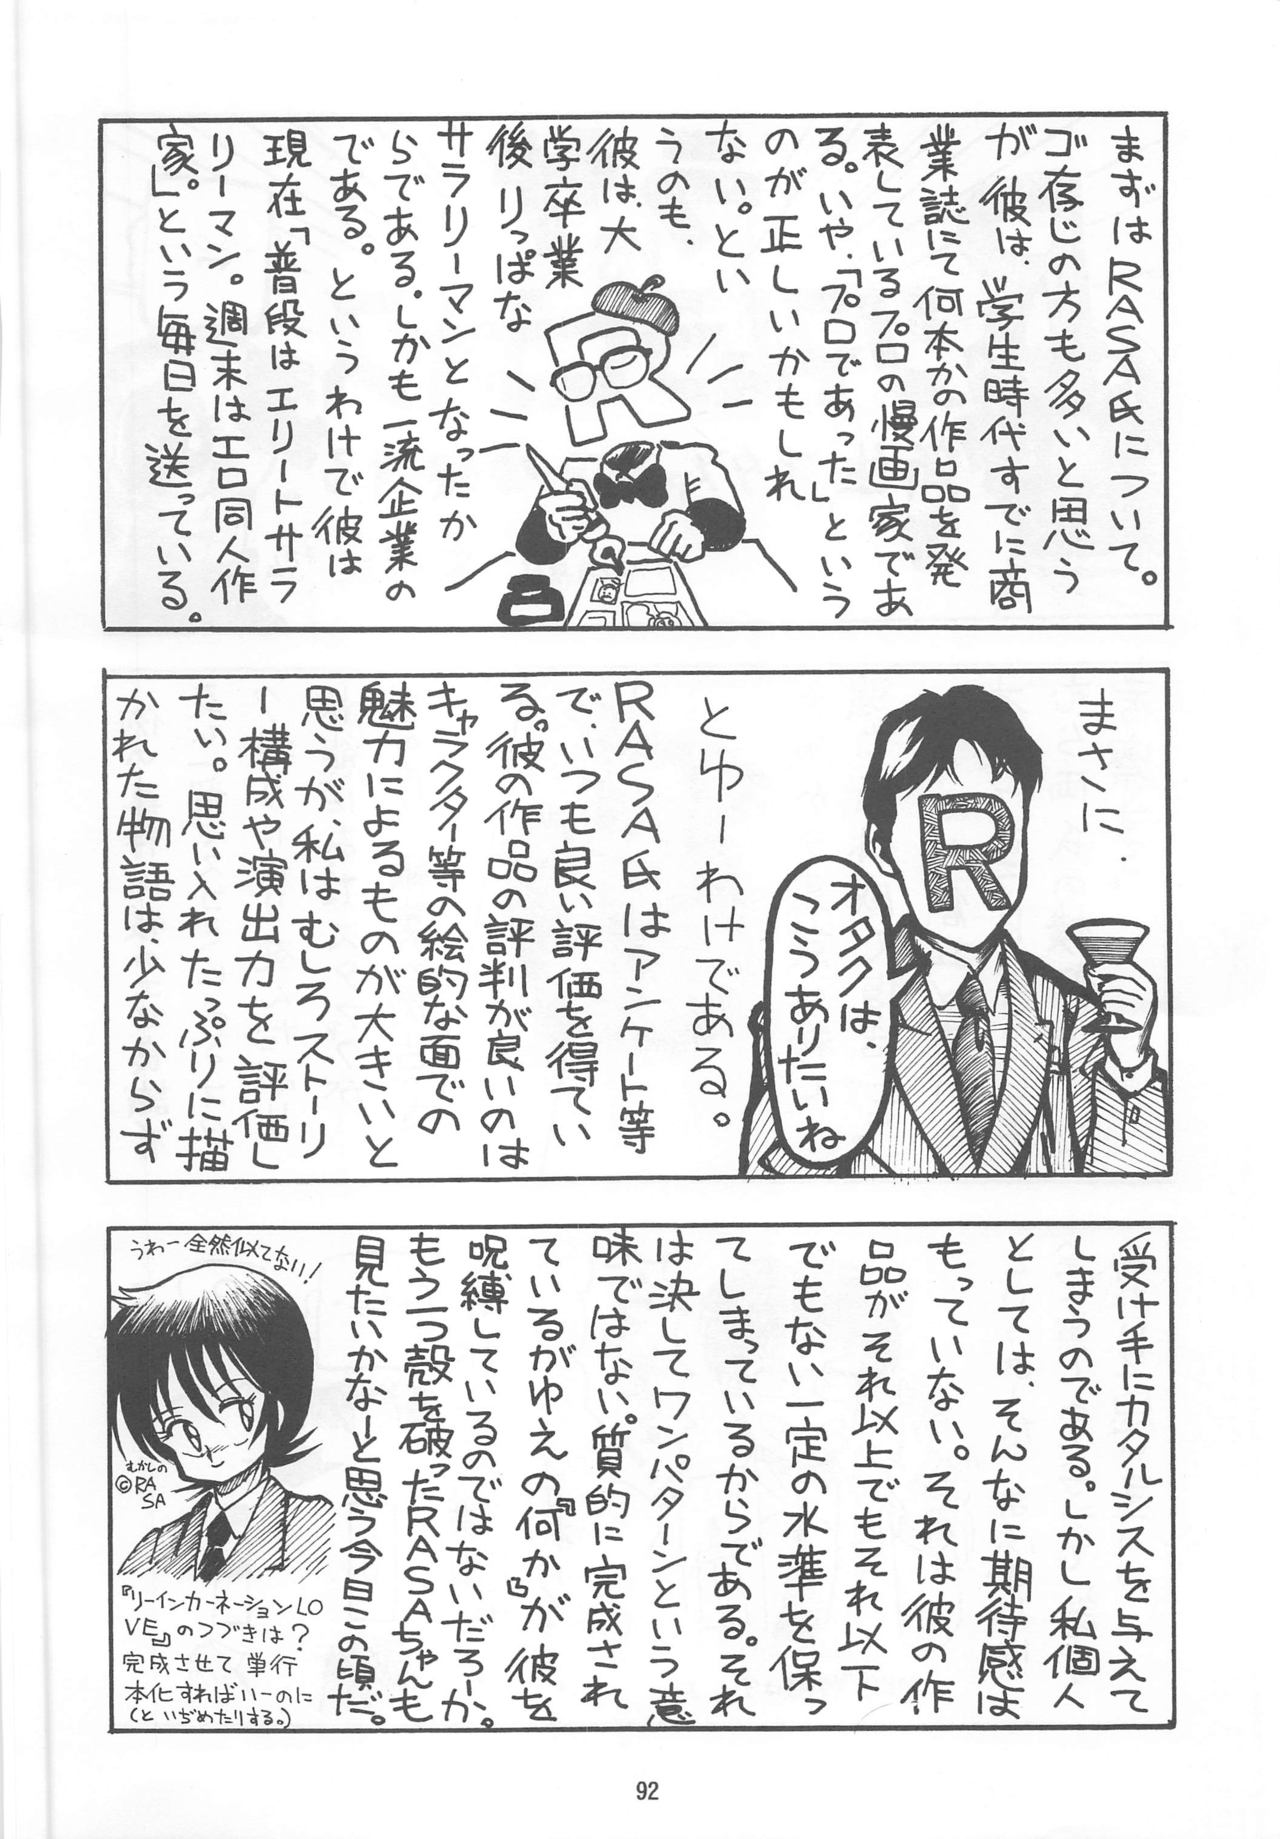 まずはRASA氏について。
ゴ存じの方も多いと思う
が彼は、学生時代すでに商
業誌にて何本かの作品を発
表しているプロの慢画家であ
る。いや、「プロであった」という
のが正しいかもしれ
ない。とい
うのも、
彼は、大
学卒業
後りっぱな
サラリーマンとなったか
らである。しかも一流企業の
である。というわけで彼は
現在「普段はエリートサラ
リーマン。週末はエロ同人作
家。」という毎日を送っている。
R
まさに、
R
オタクは、
こうありたいね
とゆーわけである。
RASA氏はアンケート等
で、いつも良い評価を得てい
る。彼の作品の評判が良いのは
キャラクター等の絵的な面での
魅力によるものが大きいと
思うが、私はむしろストーリ
ー構成や演出力を評価し
たい。思い入れたっぷりに描
かれた物語は、少なからず
受け手にカタルシスを与えて
しまうのである。しかし私個人
としては、そんなに期待感は
もっていない。それは彼の作
品がそれ以上でもそれ以下
でもない一定の水準を保っ
てしまっているからである。それ
は決してワンパターンという意
味ではない。質的に完成され
ているがゆえの『何か』が彼を
呪縛しているのではないだろーか。
もう一つ殻を破ったRASAちゃんも
見たいかなーと思う今日この頃だ。
うわー全然似てない!
むかしの
©RA
SA
『リーインカーネーションLO
VE』のつづきは?
完成させて単行
本化すればいーのに
(といぢめたりする。)
92